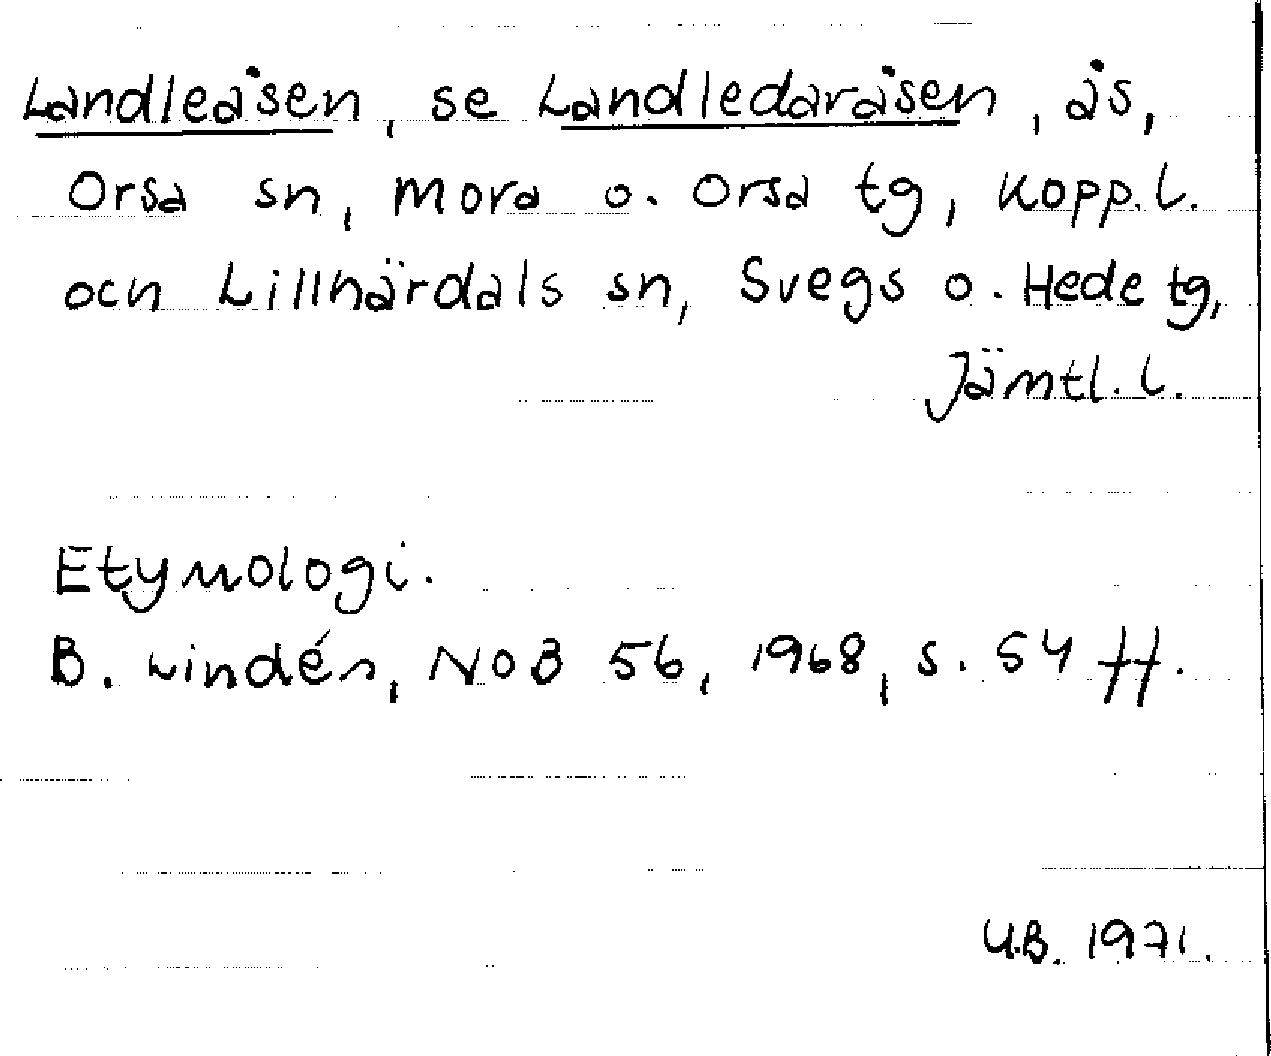 Landleåsen, se Landledaråsen, ås,
Orsa sn, Mora o. Orsa tg, Kopp. l.
och Lillhärdals sn, Svegs o. Hede tg,
Jämtl. l.
Etymologi.
B. Lindén, NOB 56, 1968, s. 54 ff.
U.B. 1971.